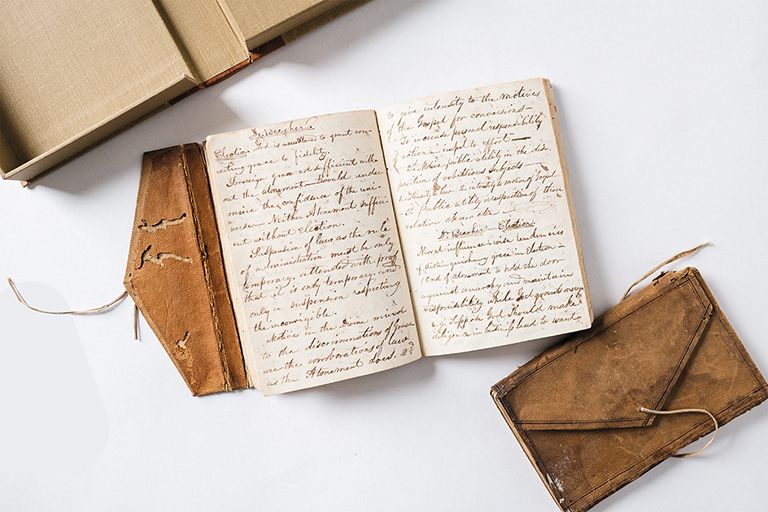 Dr Beecher.
Election. God is
grace to fidelity.
Sovereign grace not sufficient with
out the atonement would under
mine the confidence of the uni
verse. Neither Atonement suffici
ent without Election.
Suspension of laws as the rule
of administration must be only
temporary & attended with proof
that it is only temporary, and
only a suspension respecting
the incorrigible.
Motives in the Divine mind
to the discriminations of Grace
are the corroborations of law
as the Atonement does.
to give intensity to the motives
of the Gospel for conversions—
To increase personal responsibility
& action & impel to effort—
public utility in the dis
position of rebellious subjects—
& public utility irrespective of their
relative character
Dr Beecher Election.
Moral influence & wise tendencies
of distinguishing grace in Election in
of atonement to hold the door
against anarchy and maintain
responsibility while God
God should make
diligence in